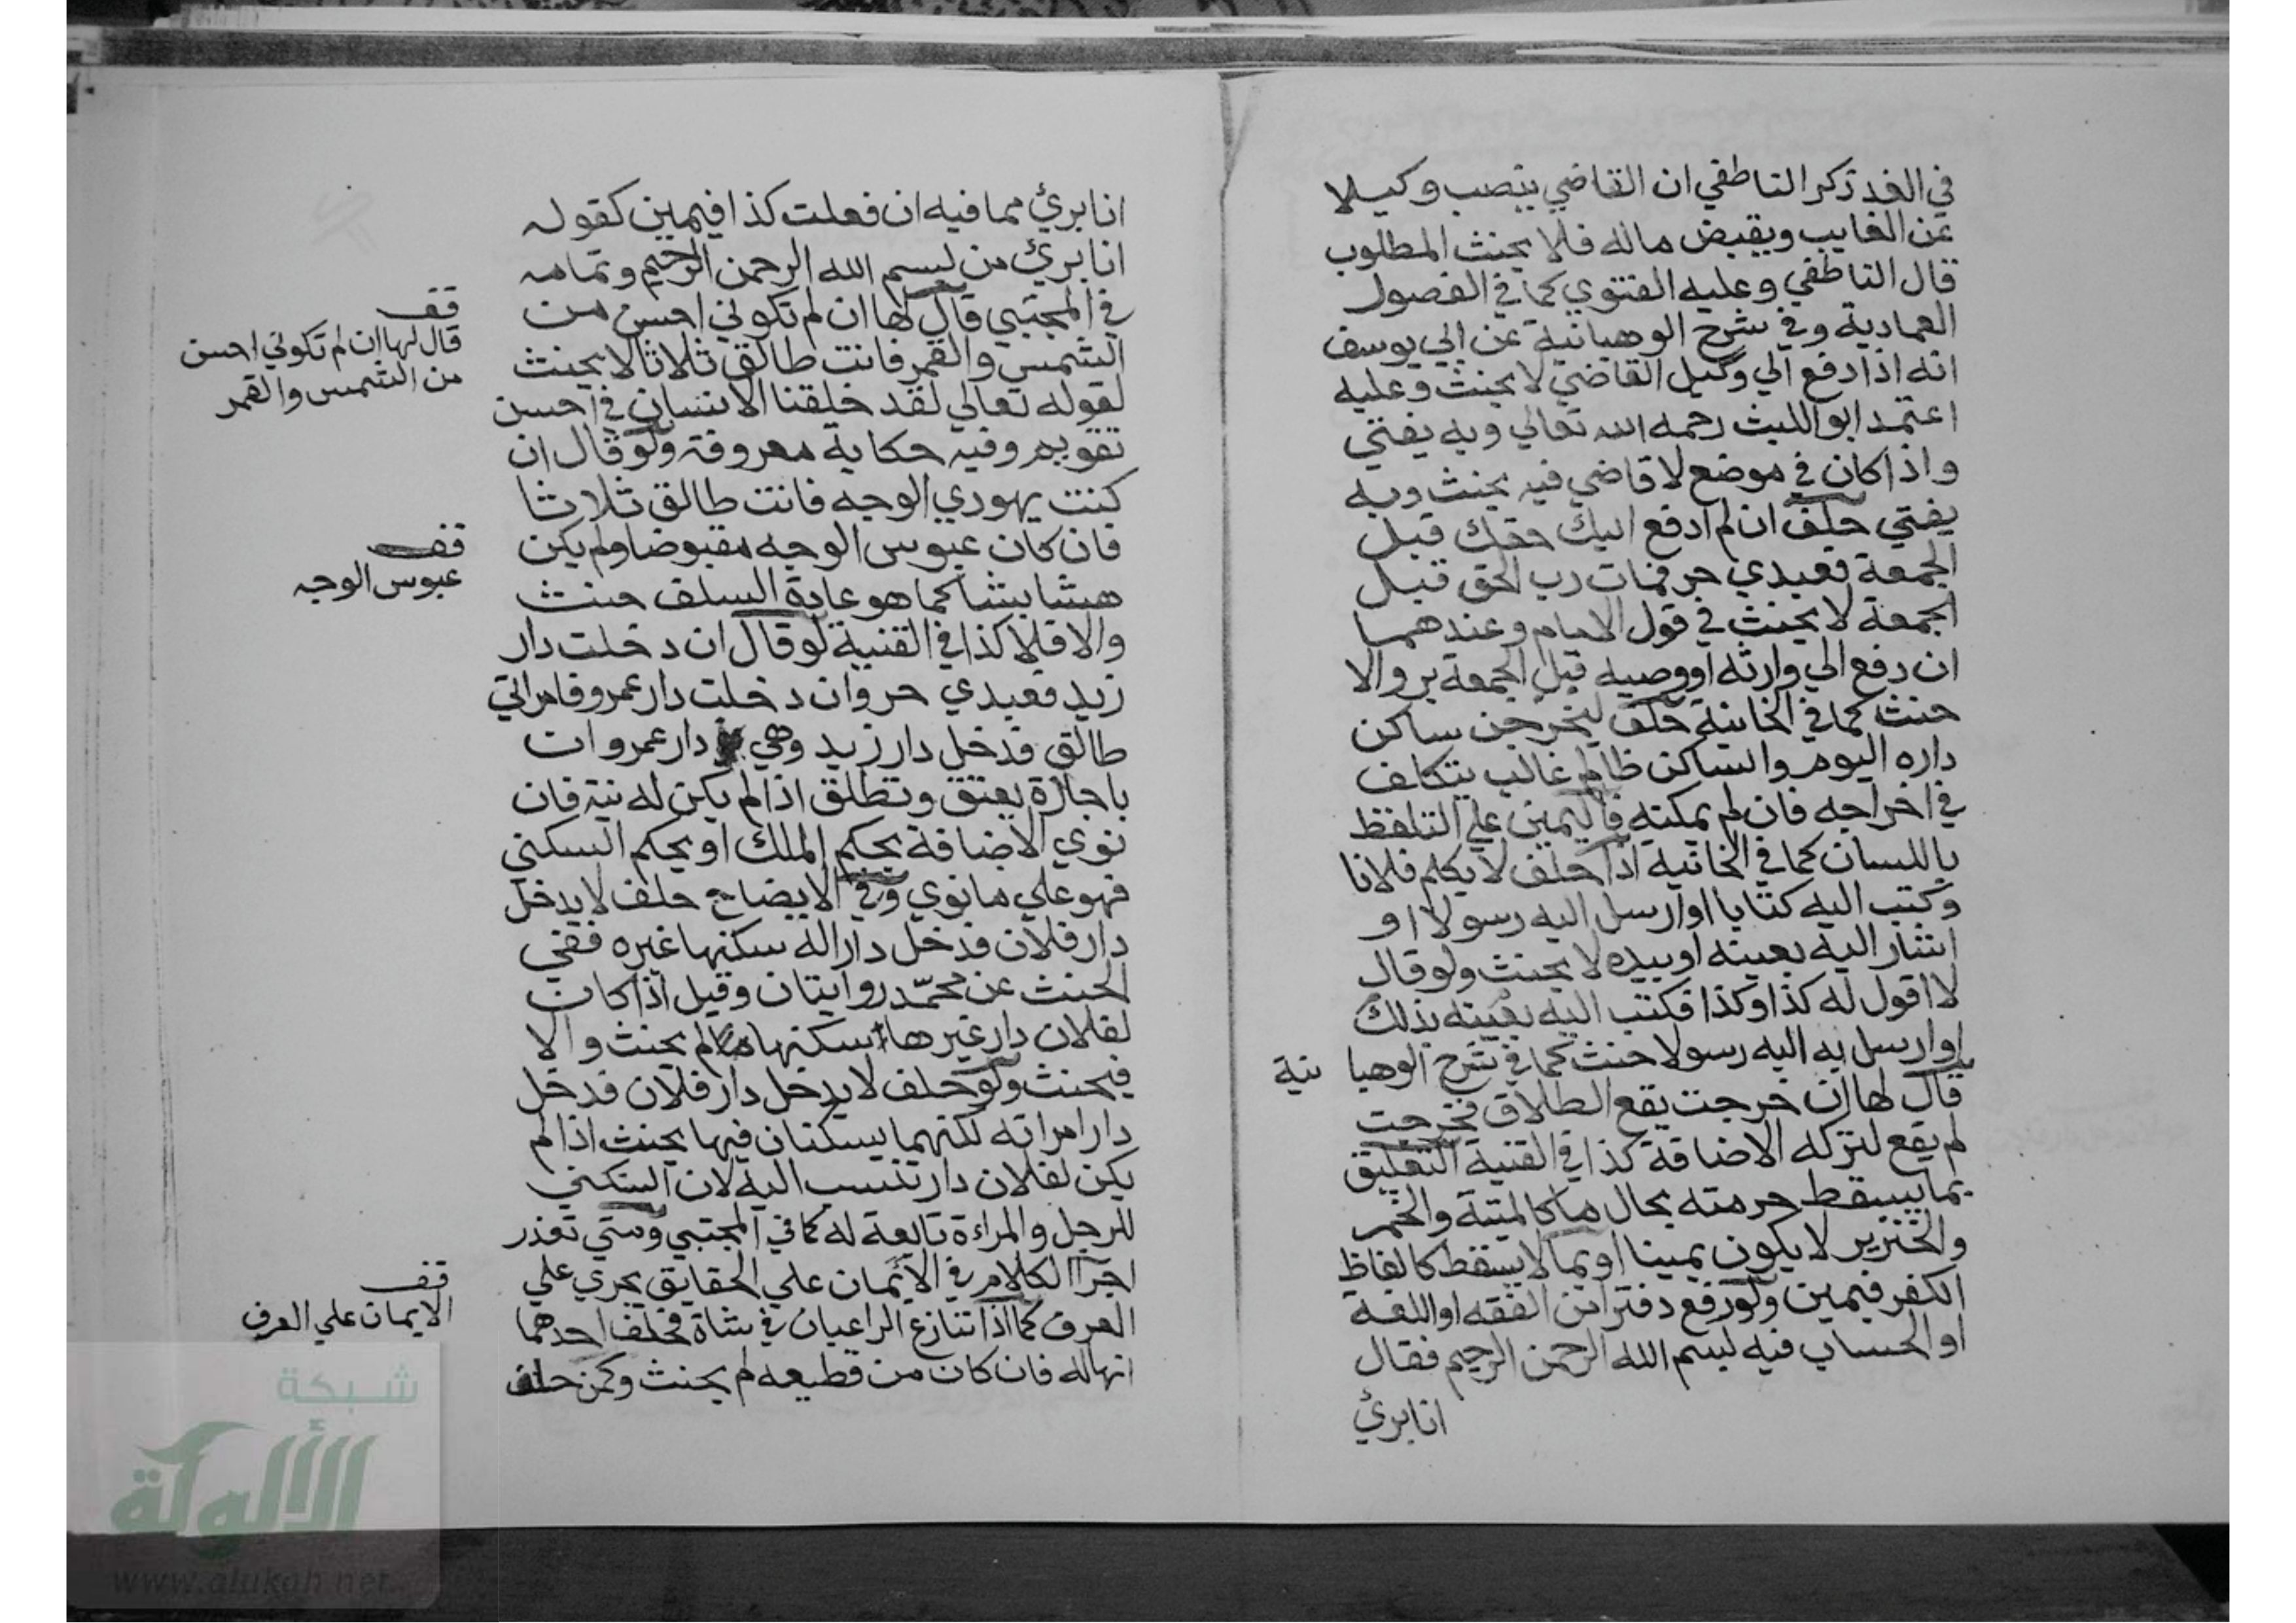 في الغد ذكر الناطفي ان القاضي ينصب وكيلا
عن الغايب ويقبض ماله فلا يحنث المطلوب
قال الناطفي وعليه الفتوي كما في الفصول
العمادية وفي شرح الوهبانية عن ابي يوسف
انه اذا دفع الي وكيل القاضي لا يحنث وعليه
اعتمد ابو الليث رحمه الله تعالي وبه يفتي
واذا كان في موضع لا قاضي فيه يحنث وبه
يفتي حلف ان لم ادفع اليك حقك قبل
الجمعة فعبدي حر فمات رب الحق قبل
الجمعة لا يحنث في قول الامام وعندهما
ان دفع الي وارثه او وصيه قبل الجمعة بر والا
حنث كما في الخانية حلف ليخرجن ساكن
داره اليوم والساكن ظالم غالب يتكلف
في اخراجه فان لم يمكنه فاليمين علي التلفظ
باللسان كما في الخانية اذا حلف لا يكلم فلانا
وكتب اليه كتابا او ارسل اليه رسولا او
اشار اليه بعينه او بيده لا يحنث ولو قال
لا اقول له كذا وكذا فكتب اليه بعينه بذلك
او ارسل به اليه رسولا حنث كما في شرح الوهبا نية
قال لها ان خرجت يقع الطلاق فخرجت
لم يقع لتركه الاضافة كذا في القنية التعليق
بما يسقط حرمته بحال ما كالميتة والخمر
والخنزير لا يكون يمينا او بما لا يسقط كالفاظ
الكفر فيمين ولو رفع دفتر ابن الفقه او اللغة
او الحساب فيه لبسم الله الرحمن الرحيم فقال
انا برئ
انا برئ مما فيه ان فعلت كذا فيمين كقوله
انا برئ من لبسم الله الرحمن الرحيم وتمامه
في المجتبي قال لها ان لم تكوني احسن من
الشمس والقمر فانت طالق ثلاثا لا يحنث
لقوله تعالي لقد خلقنا الانسان في احسن
تقويم وفيه حكاية معروفة ولو قال ان
كنت يهودي الوجه فانت طالق ثلاثا
فان كان عبوس الوجه مقبوضا ولم يكن
هشا بشا كما هو عادة السلف حنث
والا فلا كذا في القنية لو قال ان دخلت دار
زيد فعبدي حر وان دخلت دار عمرو فامراتي
طالق فدخل دار زيد وهي دار عمرو ان
باجارة يعتق وتطلق اذا لم يكن له نية فان
نوي الاضافة بحكم الملك او بحكم السكني
فهو علي ما نوي وفي الايضاح حلف لا يدخل
دار فلان فدخل دارا له سكنها غيره ففي
الحنث عن محمّد روايتان وقيل اذا كان
لفلان دار غيرها سكنها لم يحنث والا
فيحنث ولو حلف لا يدخل دار فلان فدخل
دار امراته لكنهما يسكنان فيها يحنث اذا لم
يكن لفلان دار تنسب اليه لان السكني
للرجل والمراءة تابعة له كما في المجتبي ومتي تعذر
اجرٓا الكلام في الأيمان علي الحقايق يجري علي
العرف كما اذا تنازع الراعيان في شاة فحلف احدهما
انها له فان كان من قطيعه لم يحنث وكمن حلف
قف
قال لها ان لم تكوني احسن
من الشمس والقمر
قف
عبوس الوجه
قف
الايمان علي العرف
شبكة
الألوكة
www.alukah.net